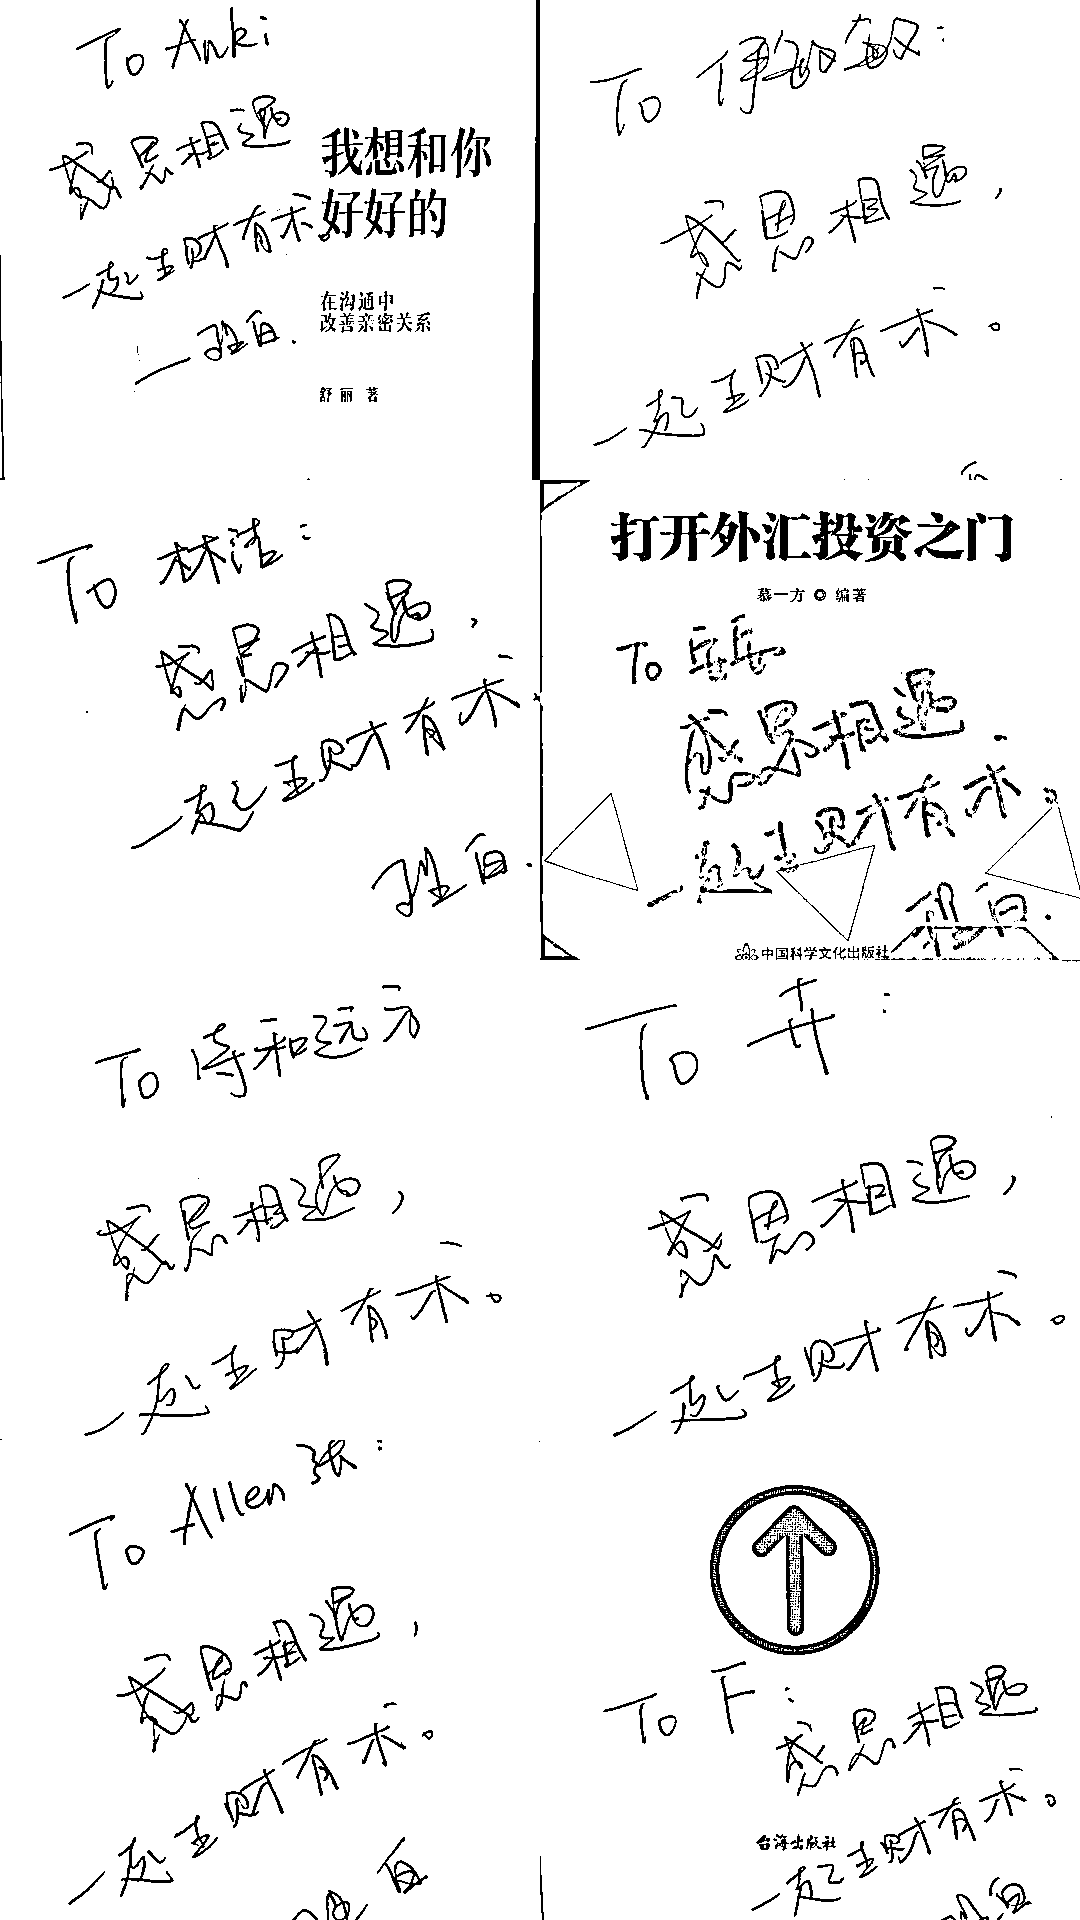 To Anki
感恩相遇
一起生财有术,
我想和你
好好的
在沟通中
改善亲密关系
舒丽 著
To 伊敏敏:
感恩相遇,
一起生财有术。
To 林洁:
感恩相遇,
一起生财有术.
白.
打开外汇投资之门
慕一方 编著
To
感恩相遇.
一起生财有术。
白.
中国科学文化出版社
To 诗和远方
感恩相遇,
一起生财有术。
To 卉:
感恩相遇,
一起生财有术。
To Allen张:
感恩相遇,
一起生财有术。
白
To F:
感恩相遇
台海出版社
一起生财有术。
白